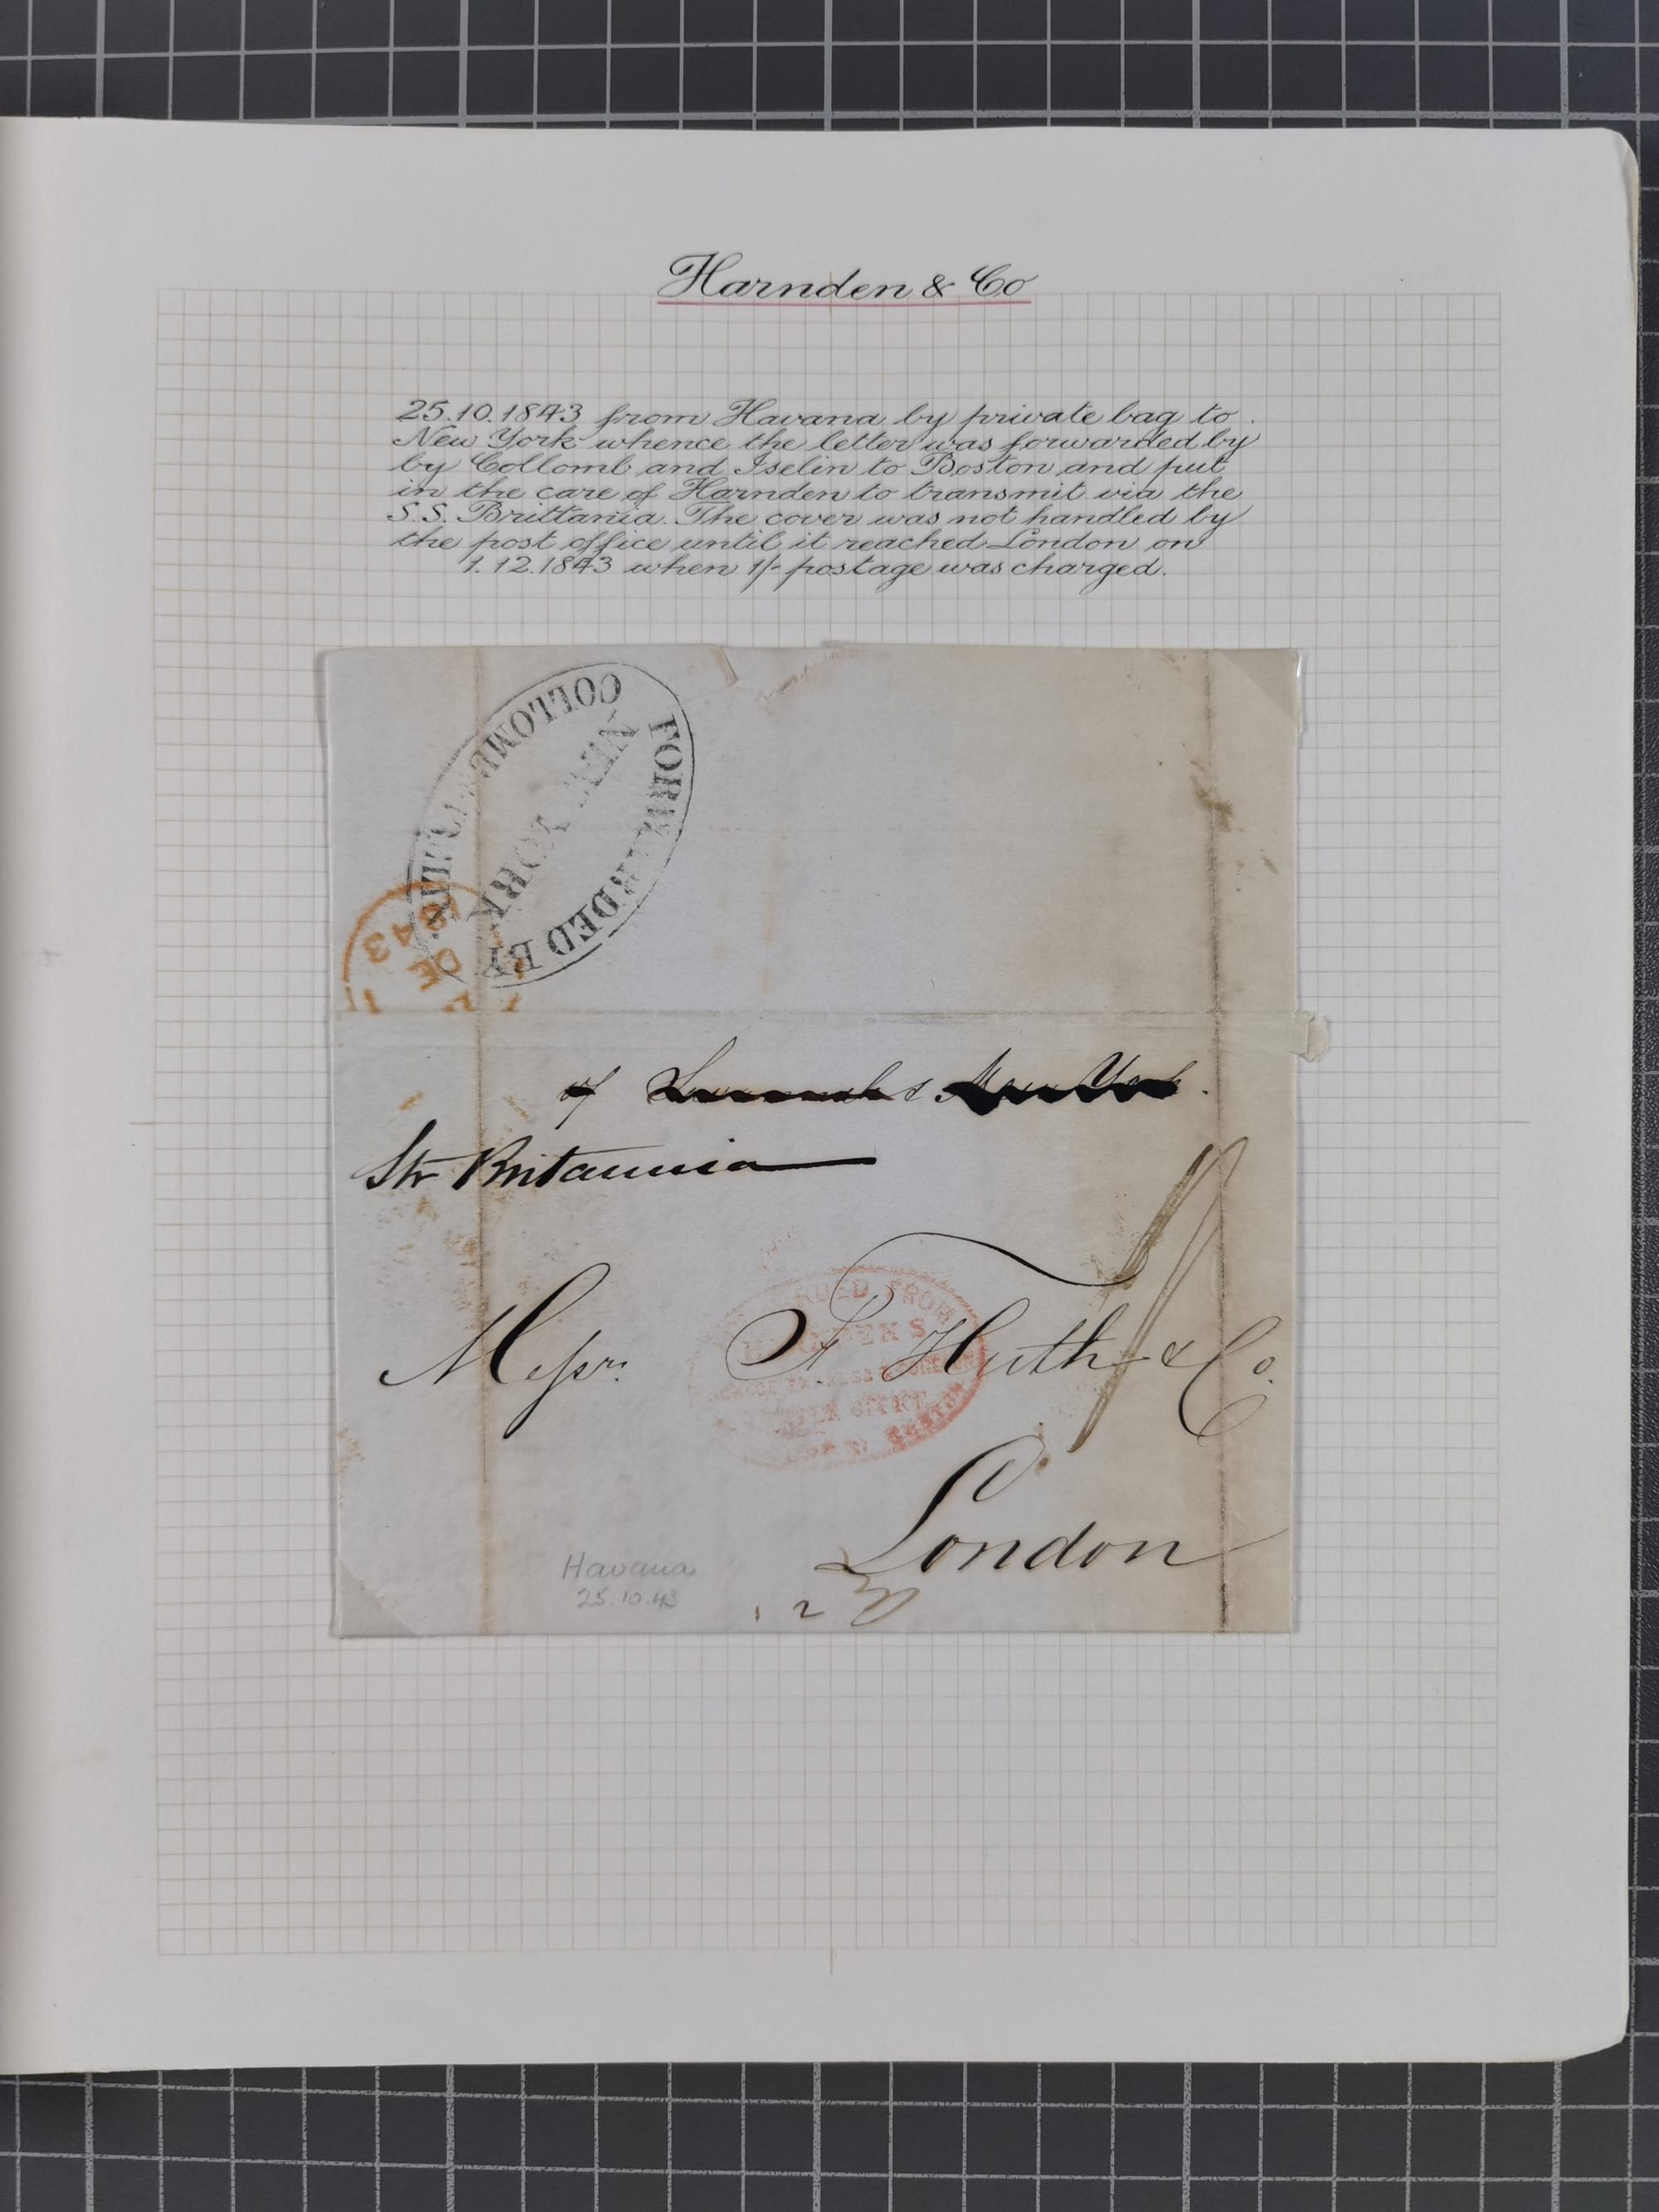 Harnden & Co
25.10.1843 from Havana by private bag to
New York whence the letter was forwarded by
by Collomb and Iselin to Boston and put
in the care of Harnden to transmit via the
S.S. Brittania. The cover was not handled by
the post office until it reached London on
1.12.1843 when 1/- postage was charged.
FORWARDED BY
COLLOMB & ISELIN
NEW YORK
DE
1843
of
Str Britannia
Messrs. F Huth & Co.
London
FORWARDED FROM
HARNDEN'S
PACKAGE EXPRESS & FOREIGN
LETTER OFFICE
BOSTON
Havana
25.10.43